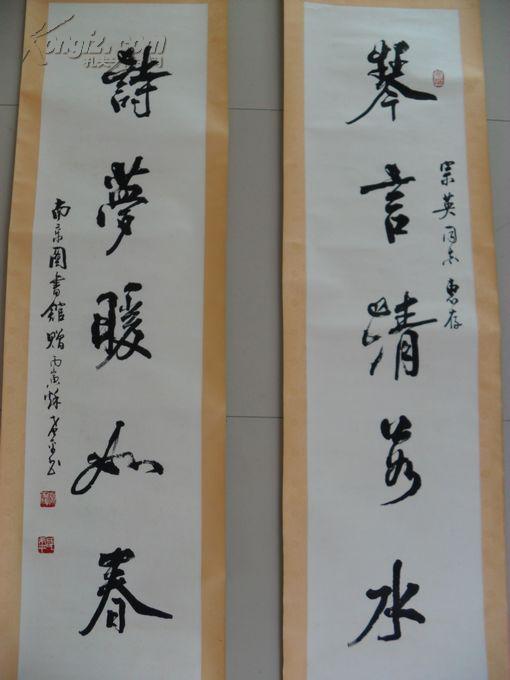 琴言清若水
宗英同志惠存
詩夢暖如春
南京圖書館贈丙寅秋
Kongfz.com